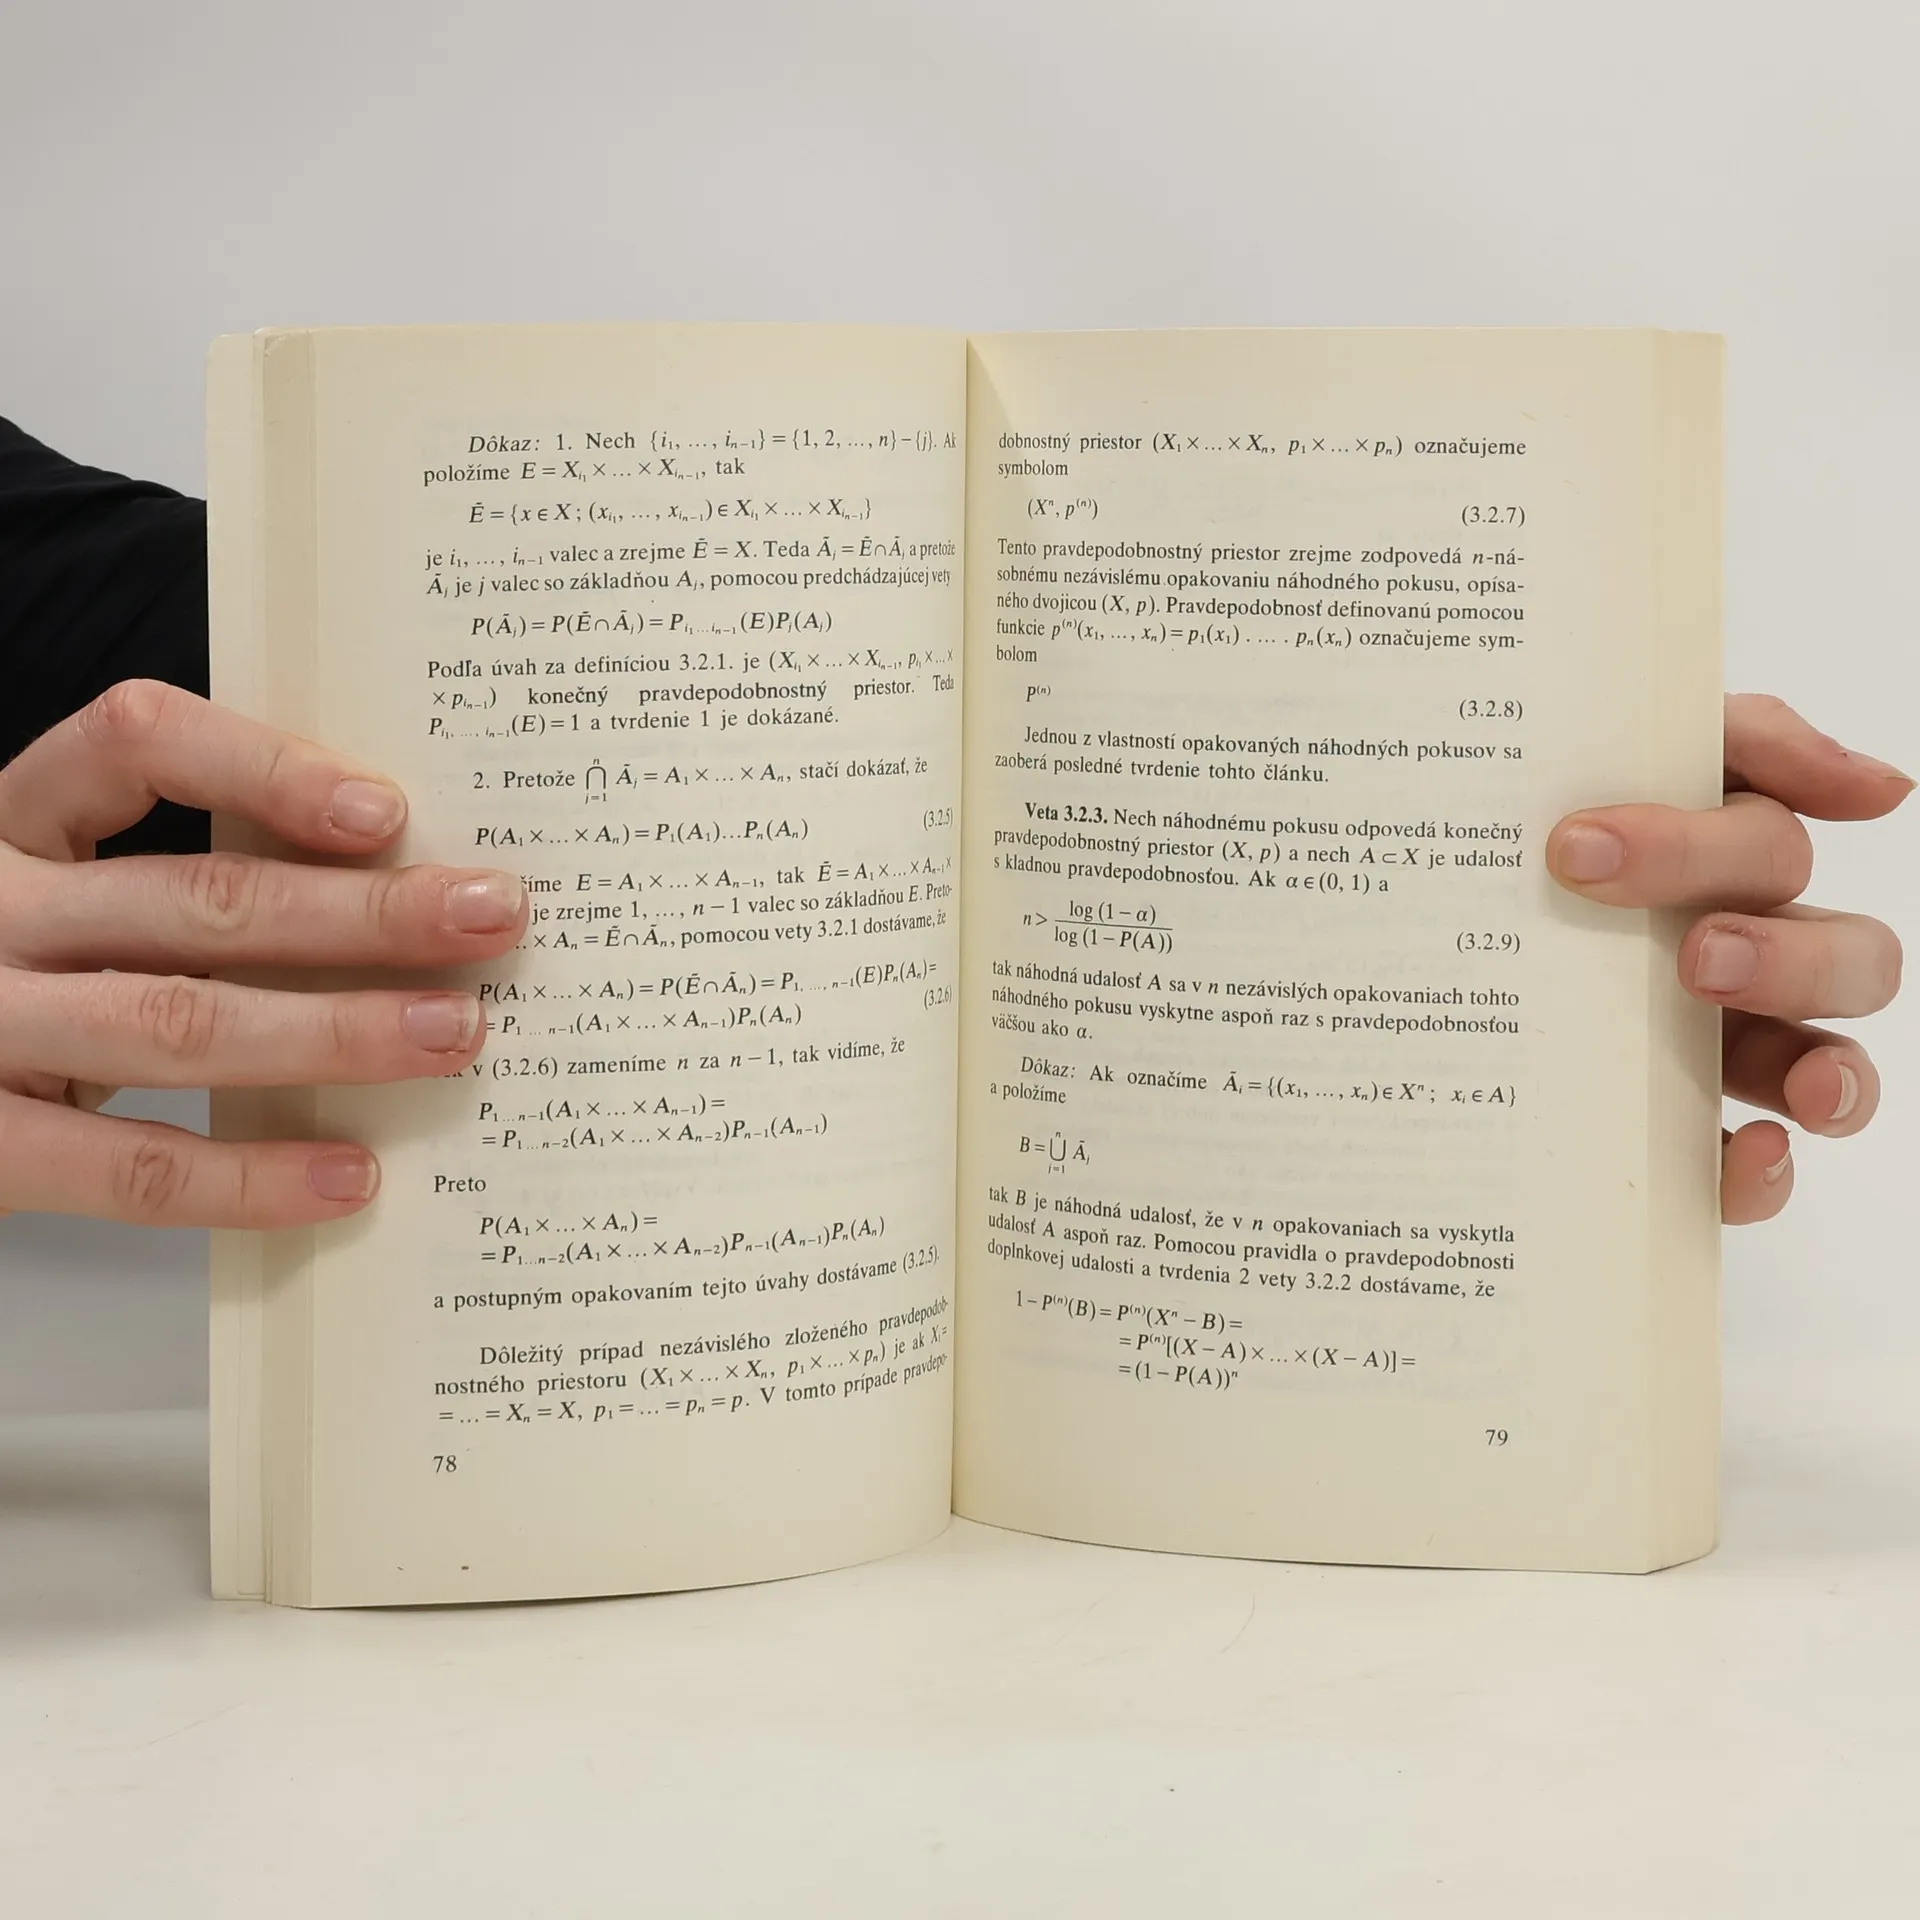 Dôkaz: 1. Nech {i₁, …, iₙ₋₁} = {1, 2, …, n} – {j}. Ak
položíme E = X_{i₁} × … × X_{iₙ₋₁}, tak
Ē = {x ∈ X; (x_{i₁}, …, x_{iₙ₋₁}) ∈ X_{i₁} × … × X_{iₙ₋₁}}
je i₁, …, iₙ₋₁ valec a zrejme Ē = X. Teda Ā_j = Ē∩Ā_j a pretože
Ā_j je j valec so základňou A_j, pomocou predchádzajúcej vety
P(Ā_j) = P(Ē∩Ā_j) = P_{i₁…iₙ₋₁}(E)P_j(A_j)
Podľa úvah za definíciou 3.2.1. je (X_{i₁} × … × X_{iₙ₋₁}, p_{i₁} × … ×
× p_{iₙ₋₁}) konečný pravdepodobnostný priestor. Teda
P_{i₁, …, iₙ₋₁}(E) = 1 a tvrdenie 1 je dokázané.
2. Pretože ⋂_{j=1}^{n} Ā_j = A₁ × … × Aₙ, stačí dokázať, že
P(A₁ × … × Aₙ) = P₁(A₁)…Pₙ(Aₙ) (3.2.5)
E = A₁ × … × Aₙ₋₁, tak Ē = A₁ × … × Aₙ₋₁ ×
je zrejme 1, …, n – 1 valec so základňou E. Preto-
× Aₙ = Ē∩Āₙ, pomocou vety 3.2.1 dostávame, že
P(A₁ × … × Aₙ) = P(Ē∩Āₙ) = P₁, …, ₙ₋₁(E)Pₙ(Aₙ) =
= P₁ … ₙ₋₁(A₁ × … × Aₙ₋₁)Pₙ(Aₙ) (3.2.6)
v (3.2.6) zameníme n za n – 1, tak vidíme, že
P₁…ₙ₋₁(A₁ × … × Aₙ₋₁) =
= P₁…ₙ₋₂(A₁ × … × Aₙ₋₂)Pₙ₋₁(Aₙ₋₁)
Preto
P(A₁ × … × Aₙ) =
= P₁…ₙ₋₂(A₁ × … × Aₙ₋₂)Pₙ₋₁(Aₙ₋₁)Pₙ(Aₙ)
a postupným opakovaním tejto úvahy dostávame (3.2.5).
Dôležitý prípad nezávislého zloženého pravdepodob-
nostného priestoru (X₁ × … × Xₙ, p₁ × … × pₙ) je ak X₁ =
= … = Xₙ = X, p₁ = … = pₙ = p. V tomto prípade pravdepo-
78
dobnostný priestor (X₁ × … × Xₙ, p₁ × … × pₙ) označujeme
symbolom
(Xⁿ, p⁽ⁿ⁾) (3.2.7)
Tento pravdepodobnostný priestor zrejme zodpovedá n-ná-
sobnému nezávislému opakovaniu náhodného pokusu, opísa-
ného dvojicou (X, p). Pravdepodobnosť definovanú pomocou
funkcie p⁽ⁿ⁾(x₁, …, xₙ) = p₁(x₁) . … . pₙ(xₙ) označujeme sym-
bolom
P⁽ⁿ⁾ (3.2.8)
Jednou z vlastností opakovaných náhodných pokusov sa
zaoberá posledné tvrdenie tohto článku.
Veta 3.2.3. Nech náhodnému pokusu odpovedá konečný
pravdepodobnostný priestor (X, p) a nech A ⊂ X je udalosť
s kladnou pravdepodobnosťou. Ak α ∈ (0, 1) a
n > log (1 – α) / log (1 – P(A)) (3.2.9)
tak náhodná udalosť A sa v n nezávislých opakovaniach tohto
náhodného pokusu vyskytne aspoň raz s pravdepodobnosťou
väčšou ako α.
Dôkaz: Ak označíme Ā_i = {(x₁, …, xₙ) ∈ Xⁿ; x_i ∈ A}
a položíme
B = ⋃_{j=1}^{n} Ā_j
tak B je náhodná udalosť, že v n opakovaniach sa vyskytla
udalosť A aspoň raz. Pomocou pravidla o pravdepodobnosti
doplnkovej udalosti a tvrdenia 2 vety 3.2.2 dostávame, že
1 – P⁽ⁿ⁾(B) = P⁽ⁿ⁾(Xⁿ – B) =
= P⁽ⁿ⁾[(X – A) × … × (X – A)] =
= (1 – P(A))ⁿ
79